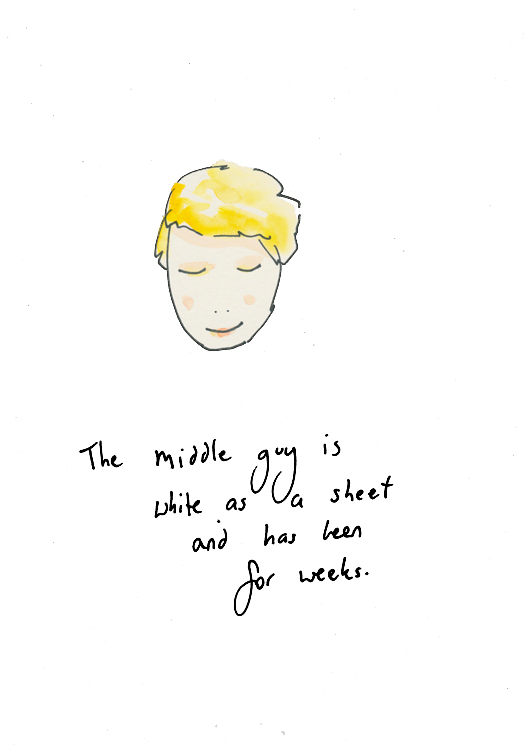 The middle guy is
white as a sheet
and has been
for weeks.